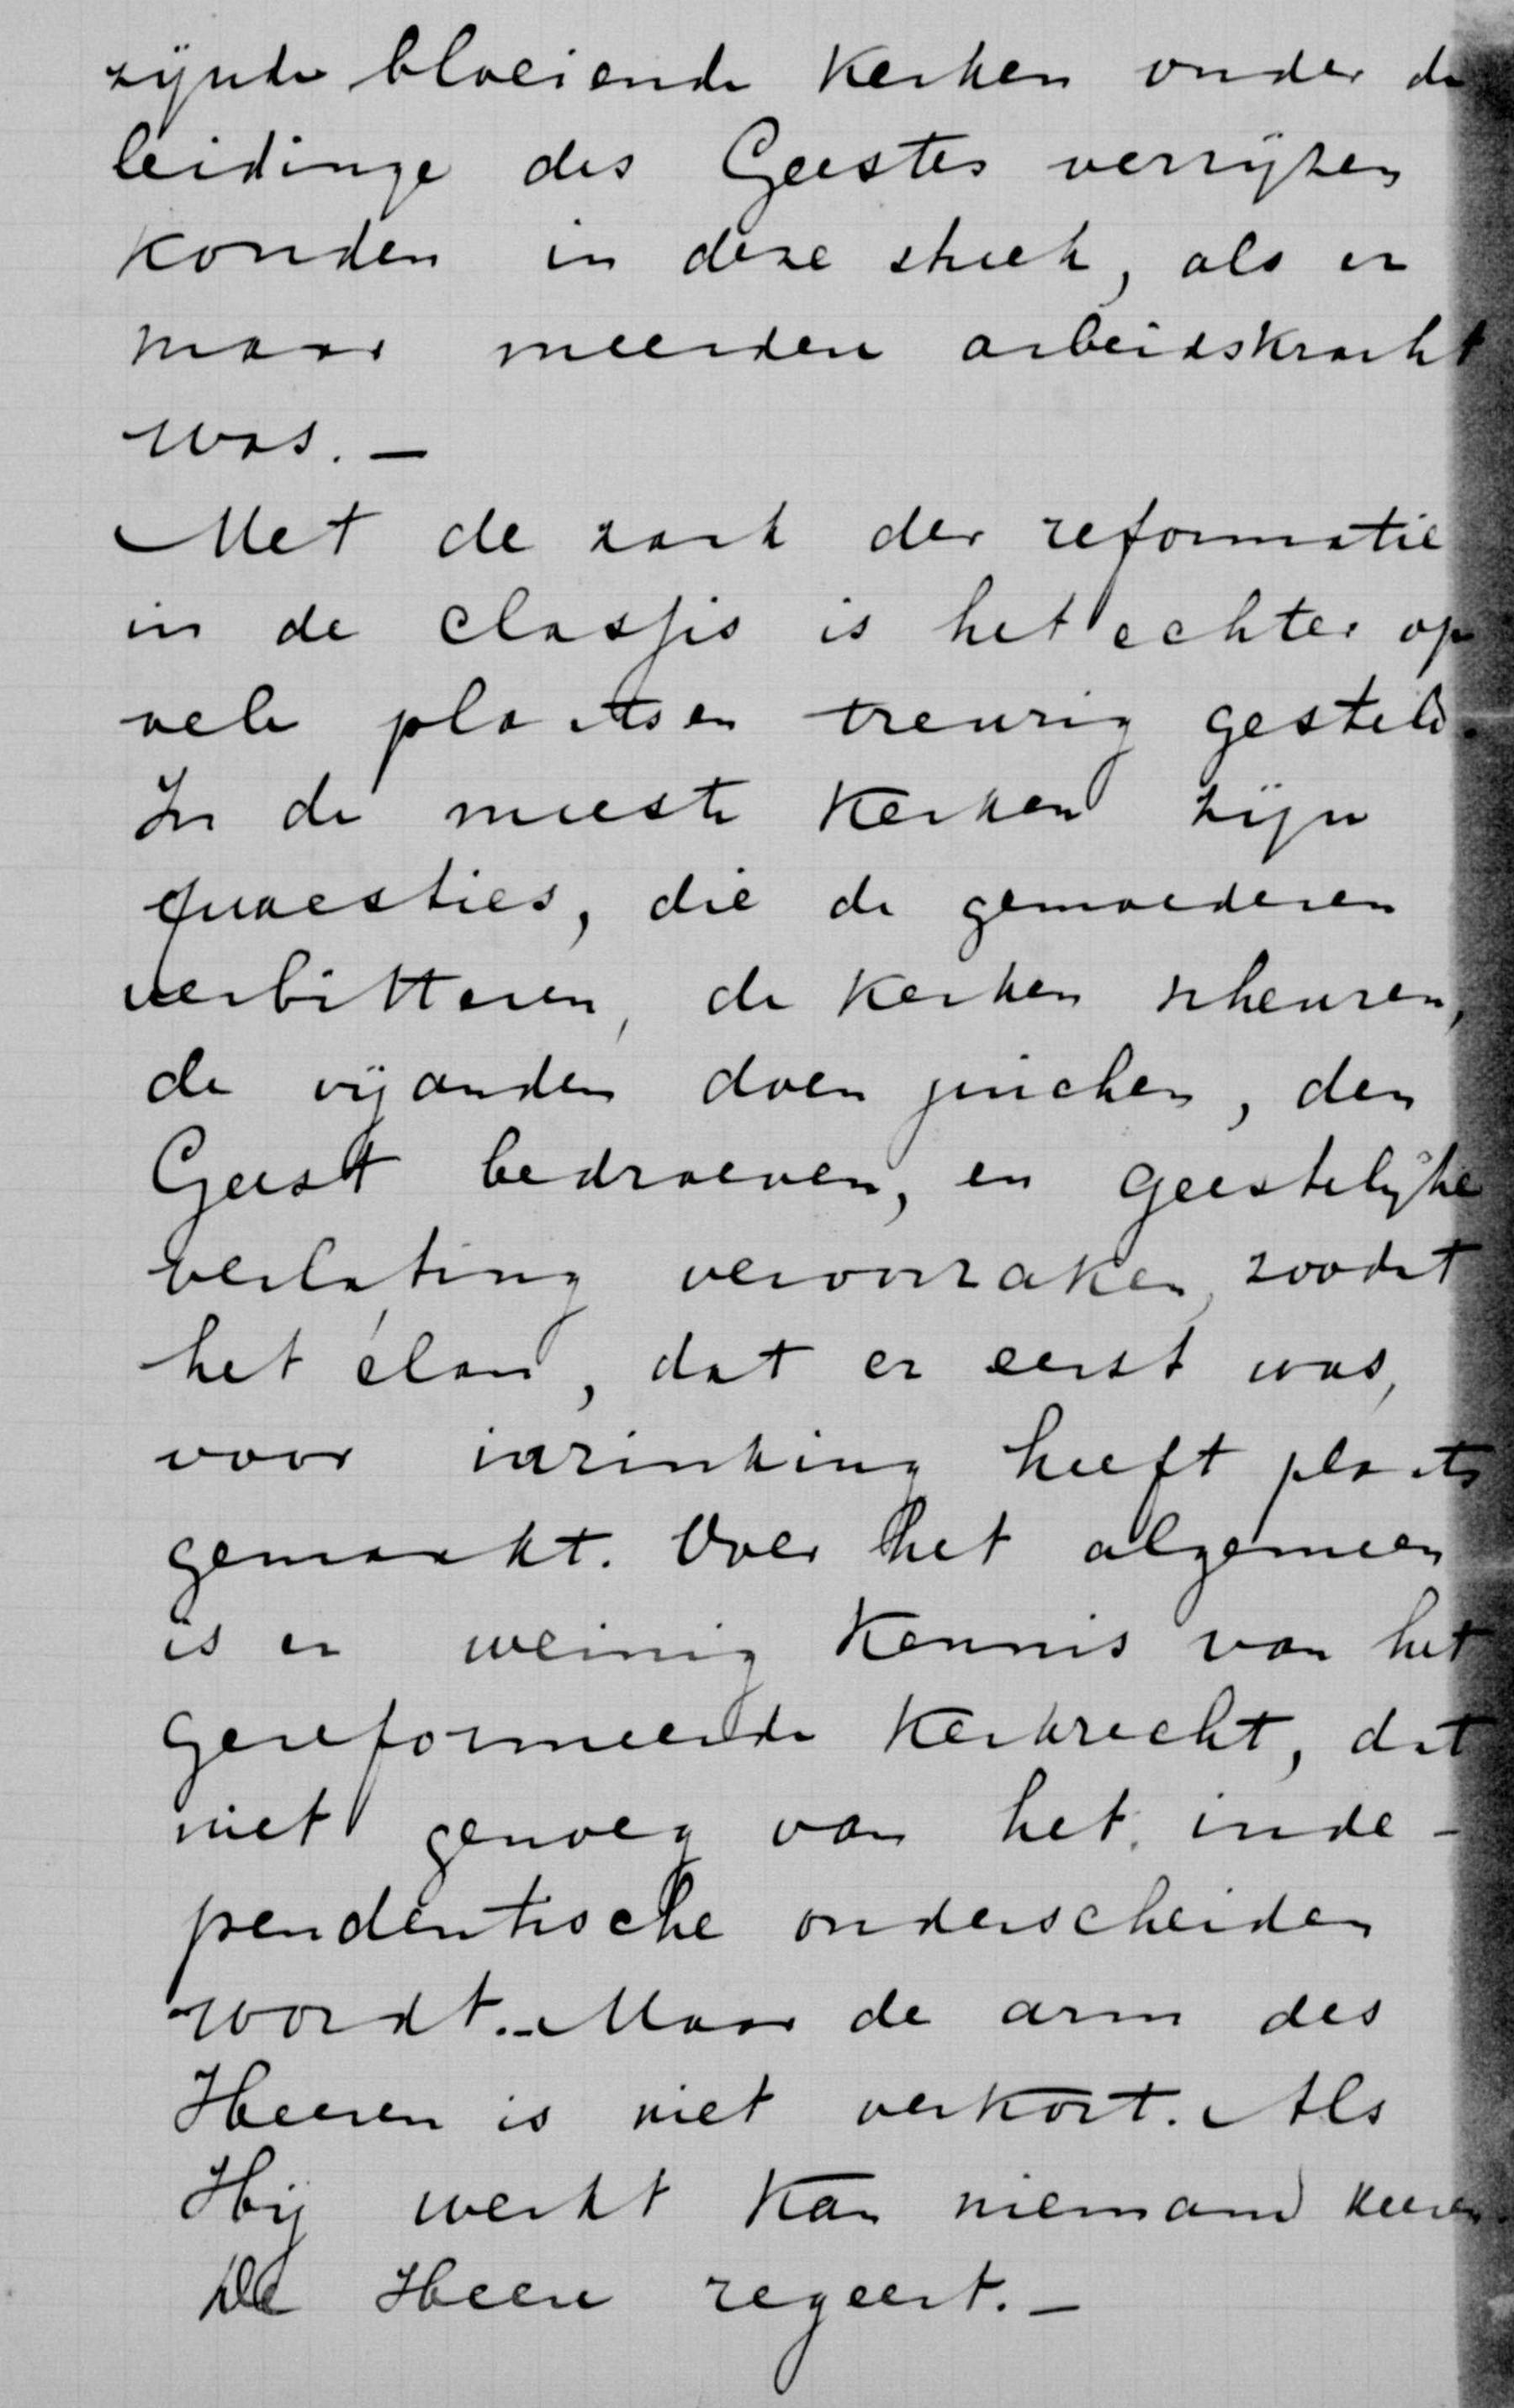 zijnde bloeiende kerken onder de
leidinge des Geestes verrijzen
konden in deze streek, als er
maar meerdere arbeidskracht
was. —
Met de zaak der reformatie
in de classis is het echter op
vele plaatsen treurig gesteld.
In de meeste kerken zijn
quaesties, die de gemoederen
verbitteren, de kerken scheuren,
de vijanden doen juichen, den
Geest bedroeven, en geestelijke
verlating veroorzaken, zoodat
het élan, dat er eerst was,
voor inzinking heeft plaats
gemaakt. Over het algemeen
is er weinig kennis van het
Gereformeerde kerkrecht, dat
niet genoeg van het inde-
pendentische onderscheiden
wordt. - Maar de arm des
Heeren is niet verkort. Als
Hij werkt kan niemand keeren.
De Heere regeert. —